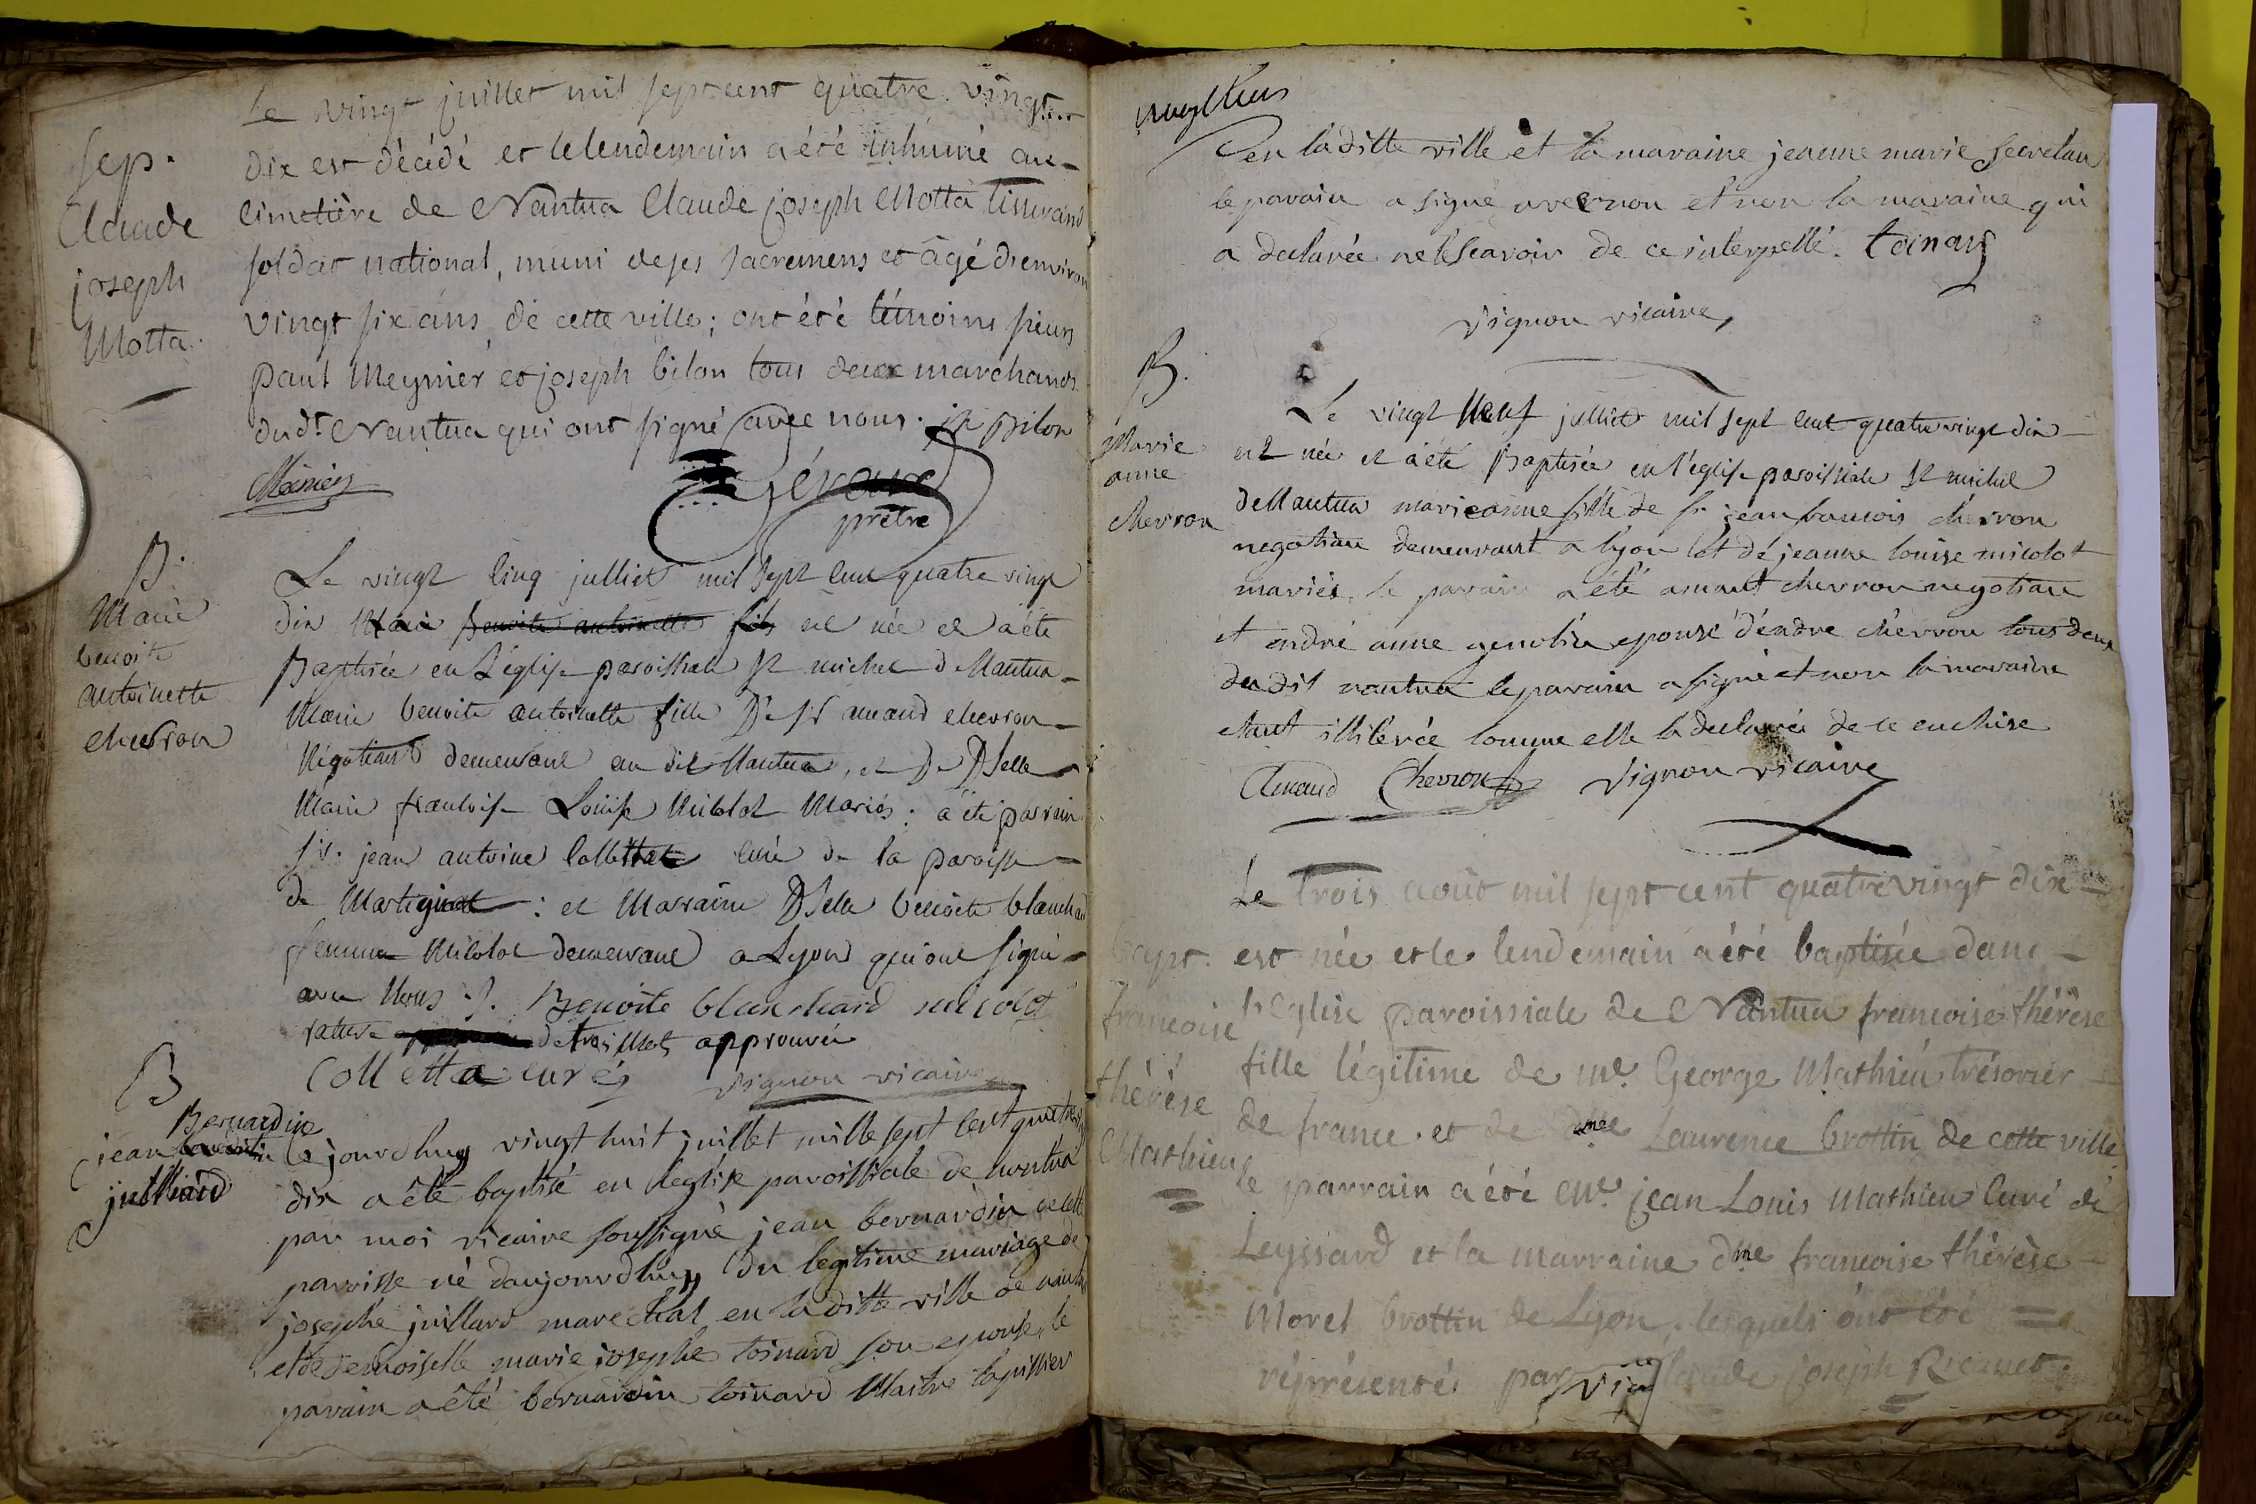 Sep.
Claude
joseph
Motta.
Le vingt juillet mil sept cent quatre vingt
dix est décédé et le lendemain a été inhumé au
cimetière de Nantua Claude joseph Motta
soldat national, muni de ses sacremens et âgé d'environ
vingt six ans, de cette ville; ont été témoins sieurs
paul Meynier et joseph bilon tous deux marchands
dudt. Nantua qui ont signé avec nous. Bilon
prêtre
B.
Marie
benoite
antoinette
chevron
Le vingt cinq julliet mil sept cent quatre vingt
dix Marie benoite antoinette fils est née et a été
Baptisée en l'églize paroissiale St michel de Nantua
Marie benoite antoinette fille De sr amand chevron
Négotiant demeurant au dit Nantua, et De Dselle
Marie francoise Louise Micolot Mariés; a été parrain
sr. jean antoine curé de la paroisse
de Martignat : et Marraine Dselle benoite blanchard
femme Micolot demeurant a Lyon qui ont signé
avec Nous ./. Benoite blanchard micolot
rature de trois Mots approuvée
Colletta curé vignon vicaire
B
Bernardin
jean
juilliard
ce jourdhuy vingt huit juillet mille sept cent quatre vingt
dix a été baptisé en l'eglise paroissiale de nantua
par moi vicaire soussigné jean bernardin de cette
paroisse né d'aujourdhuy du legitime mariage de
josephé juillard marechal en la ditte ville de nantua
et de demoiselle marie josephe toinard son epouse, le
parain a été bernardin toinard Maitre tapissier
en laditte ville et la maraine jeanne marie secretan
le parain a signé et non la maraine qui
a declarée ne le scavoir de ce interpellé. toinard
vignon vicaire
B.
Marie
anne
chevron
Le vingt Neuf julliet mil sept cent quatre vingt dix
est née et a été Baptisée en l'église paroissiale St michel
de Nantua marie anne fille de sr. jean francois chevron
negotiant demeurant a lyon et de jeanne louise micolot
mariés, le parain a été amant chevron negotiant
et anne epouse d'andre chevron tous deux
du dit nantua le parain a signé et non la maraine
étant illiterée comme elle la declarée de ce enchise
Amand Chevron vignon vicaire
bapt.
francoise
thérèse
Mathieu
Le trois août mil sept cent quatre vingt dix
est née et le lendemain a été baptisée dans
l'Eglise paroissiale de Nantua francoise thérèse
fille légitime de me. George Mathieu trésorier
de france. et de dme Laurence brottin de cette ville
le parrain a été Me. jean Louis Mathieu Curé de
Leyssard et la marraine dme francoise thérèse
Morel brottin de Lyon; lesquels ont été
réprésentés par claude joseph